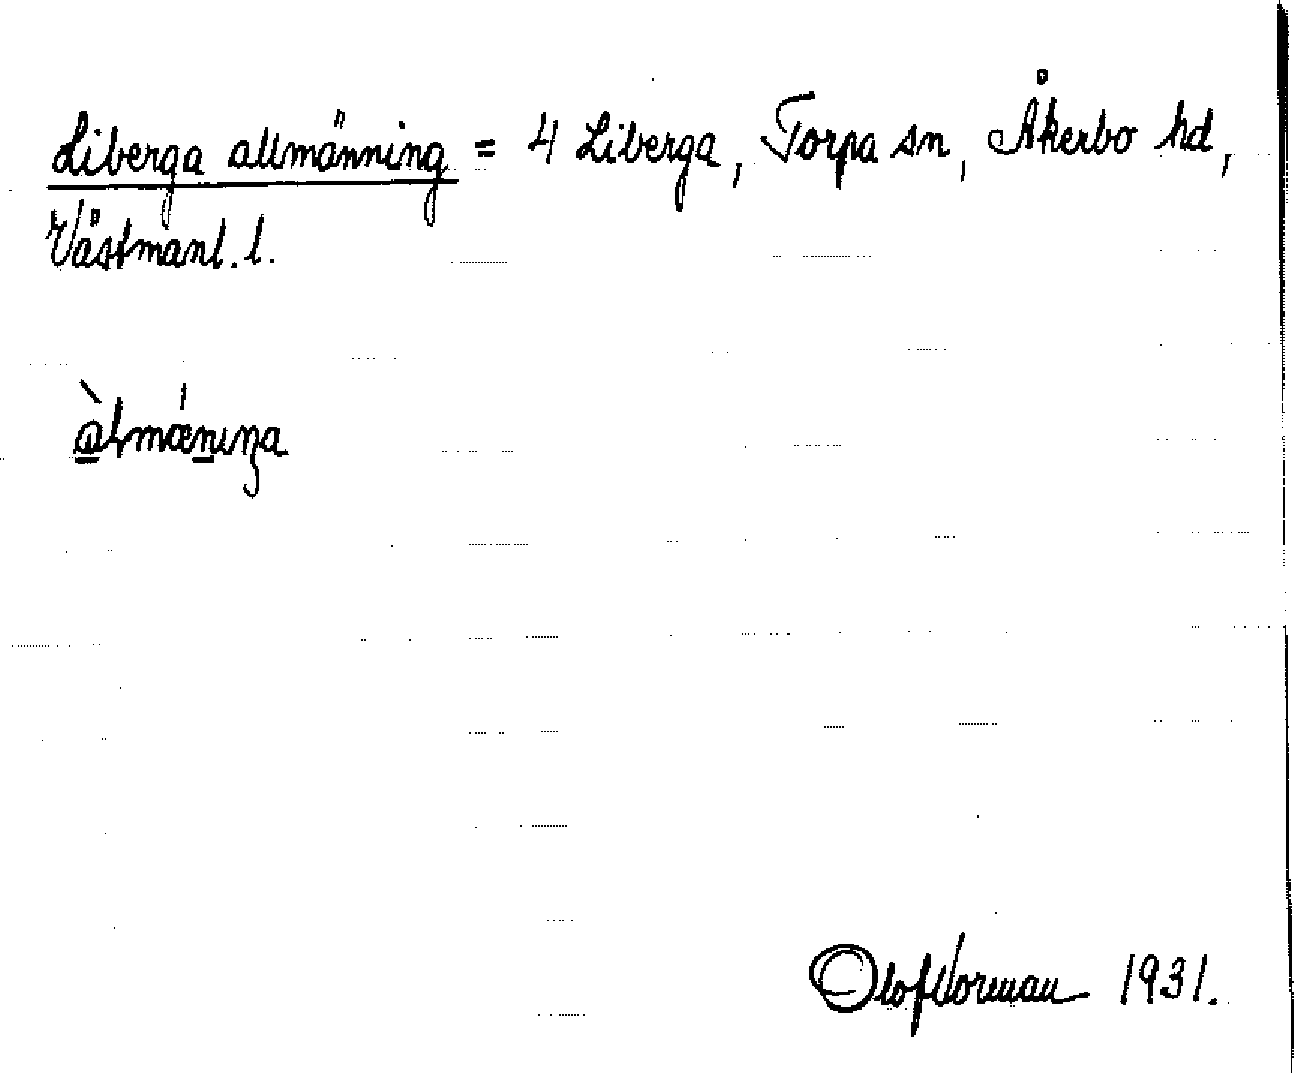 Liberga allmänning = 4 Liberga, Torpa sn, Åkerbo hd,
Västmanl. l.
àlmǽniŋa
Olof Norman 1931.